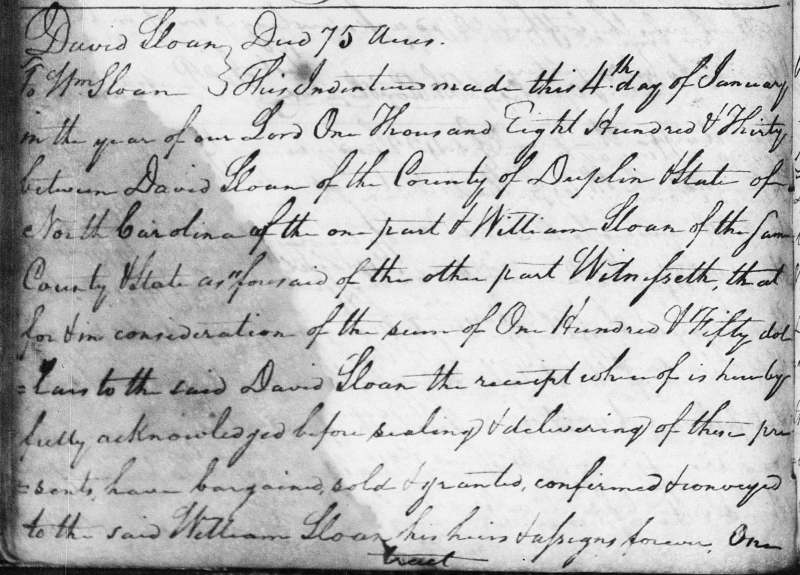 David Sloan } Deed 75 Acres.
To Wm Sloan } This Indenture made this 4th day of January
in the year of our Lord One Thousand Eight Hundred & Thirty
between David Sloan of the County of Duplin & State of
North Carolina of the one part & William Sloan of the same
County & State as "foresaid of the other part Witnesseth, that
for & in consideration of the sum of One Hundred & Fifty dol
=lars to the said David Sloan the receipt whereof is hereby
fully acknowledged before sealing & delivering of these pre
=sents, have bargained, sold & granted, confirmed & conveyed
to the said William Sloan his heirs & assigns forever, One
tract